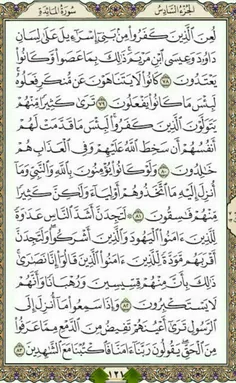 الجزء السادس سورة المائدة
لعن الذين كفروا من بنى إسرءيل على لسان
داوۥد وعيسى ابن مريم ذلك بما عصوا وكانوا
يعتدون ٧٨ كانوا لا يتناهون عن منكر فعلوه
لبئس ما كانوا يفعلون ٧٩ ترى كثيرا منهم
يتولون الذين كفروا لبئس ما قدمت لهم
أنفسهم أن سخط الله عليهم وفى العذاب هم
خلدون ٨٠ ولو كانوا يؤمنون بالله والنبى وما
أنزل إليه ما اتخذوهم أولياء ولكن كثيرا
منهم فسقون ٨١ لتجدن أشد الناس عدوة
للذين ءامنوا اليهود والذين أشركوا ولتجدن
أقربهم مودة للذين ءامنوا الذين قالوا إنا نصرى
ذلك بأن منهم قسيسين ورهبانا وأنهم
لا يستكبرون ٨٢ وإذا سمعوا ما أنزل إلى
الرسول ترى أعينهم تفيض من الدمع مما عرفوا
من الحق يقولون ربنا ءامنا فاكتبنا مع الشهدين ٨٣
١٢١